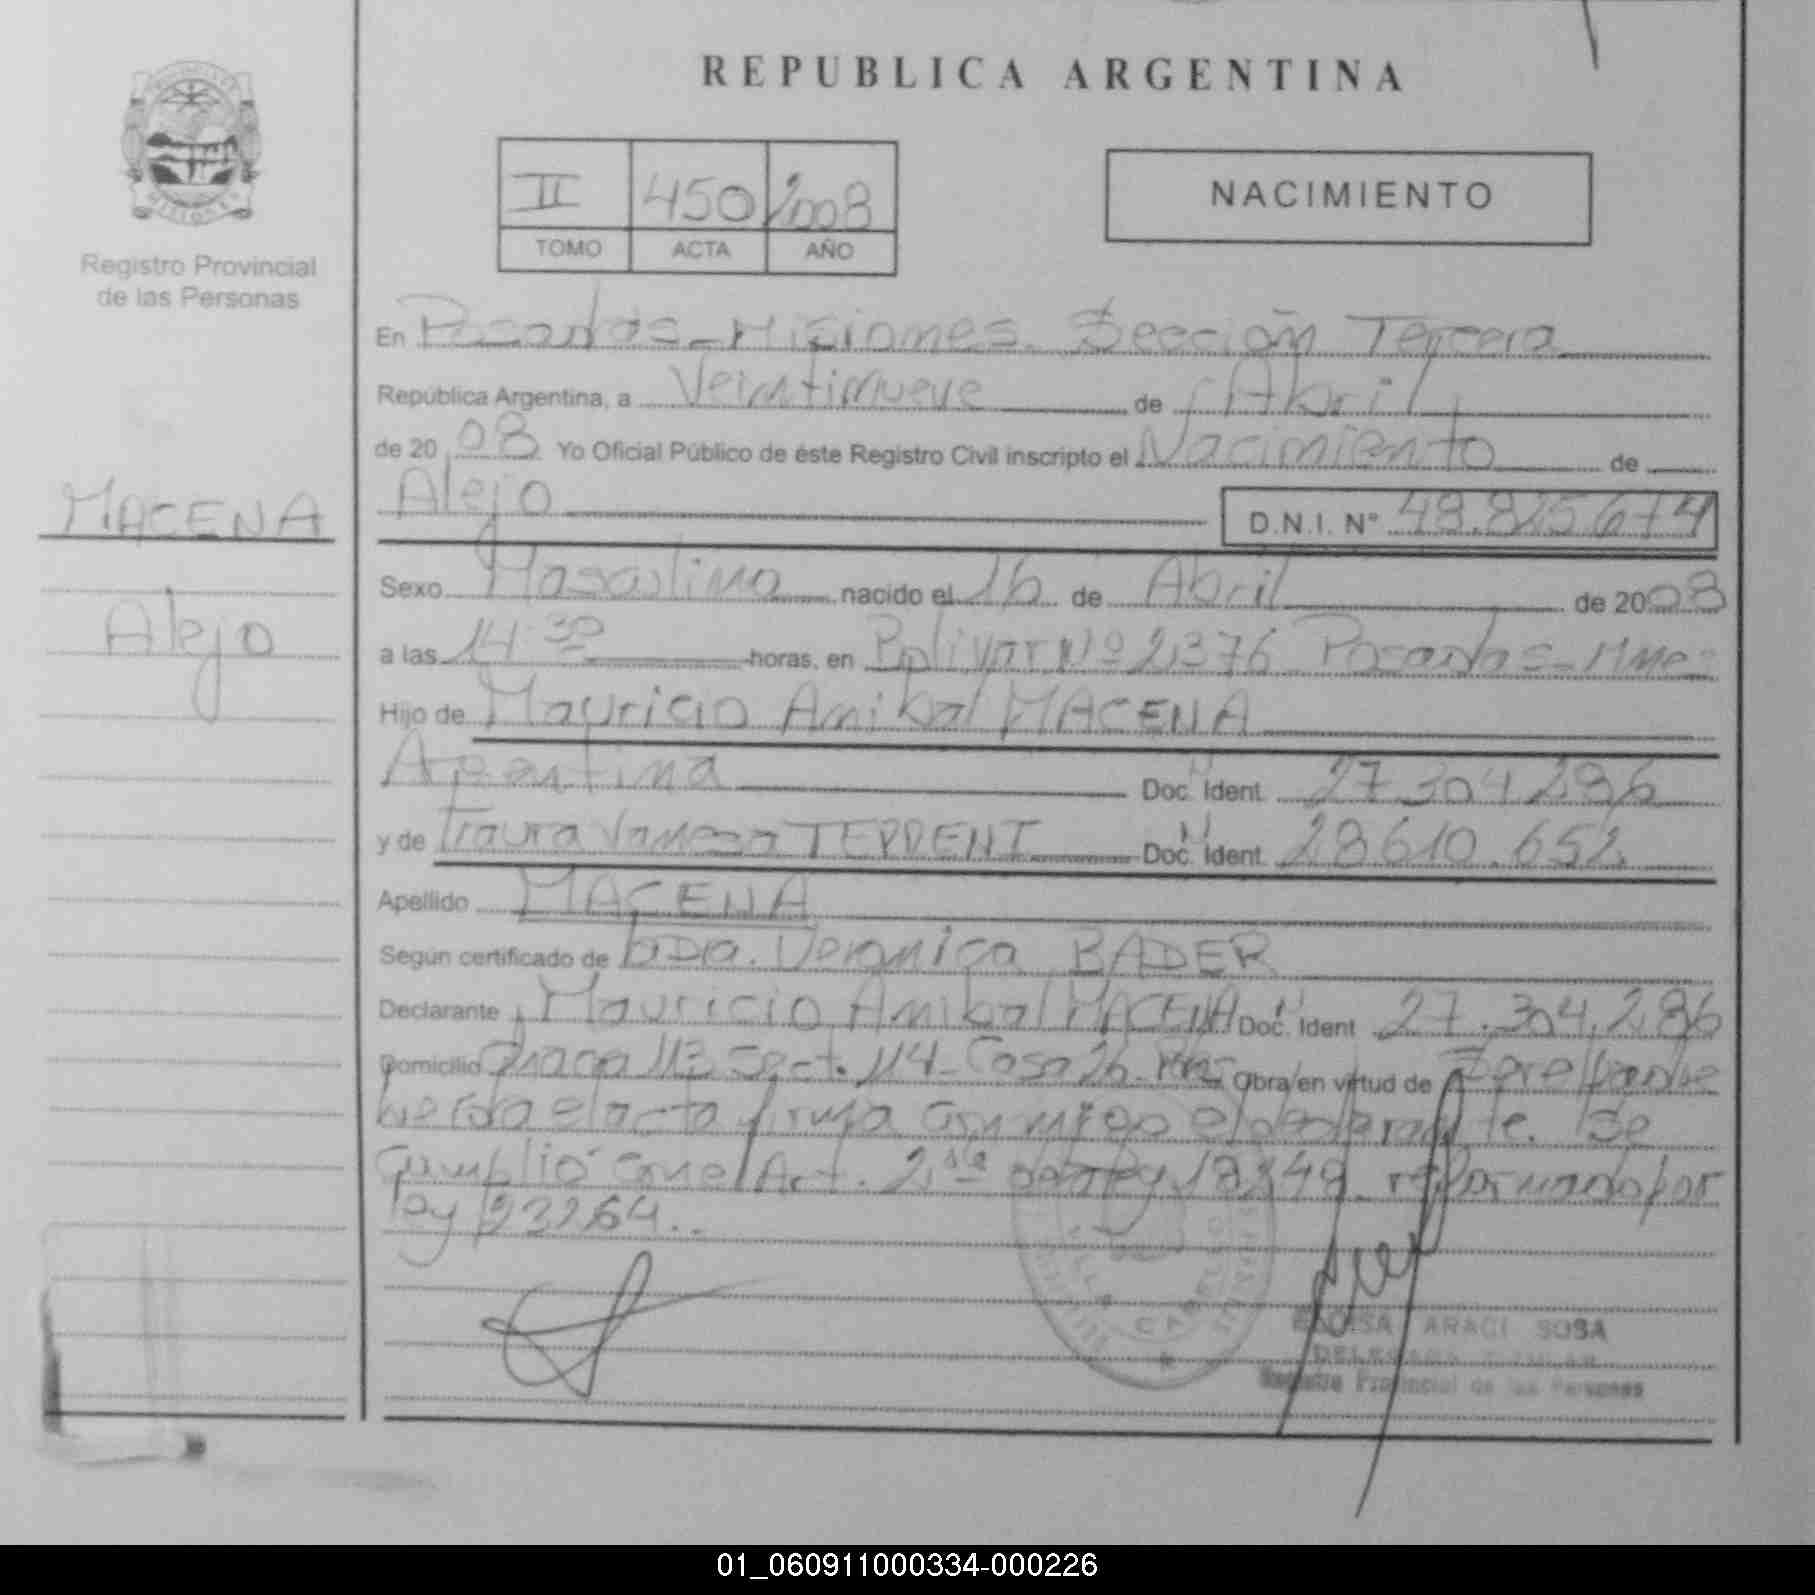 REPUBLICA ARGENTINA
II 450 2008
TOMO ACTA AÑO
NACIMIENTO
MISIONES
Registro Provincial
de las Personas
MACENA
Alejo
En Posadas - Misiones. Sección Tercera
República Argentina, a Veintinueve de Abril
de 2008 Yo Oficial Público de éste Registro Civil inscripto el Nacimiento de
Alejo D.N.I. Nº
Sexo Masculino nacido el 16 de Abril de 2008
a las 14:30 horas, en Bolivar Nº 2376 Posadas - Mnes
Hijo de Mauricio Anibal MACENA
Argentina Doc. Ident. 27.304.286
y de Vanesa Doc. Ident. 28610.652
Apellido MACENA
Según certificado de Dra. Veronica BADER
Declarante Mauricio Anibal MACENA Doc. Ident 27.304.286
Domicilio Chacra 113 Sect. 114 - Casa 26 Obra en virtud de
el acta firma conmigo el declarante. Se
Cumplió con el Art. 2 de la ley 18248 reformado por
ley 23264..
ELOISA ARACI SOSA
DELEGADA TITULAR
Registro Provincial de las Personas
01_060911000334-000226